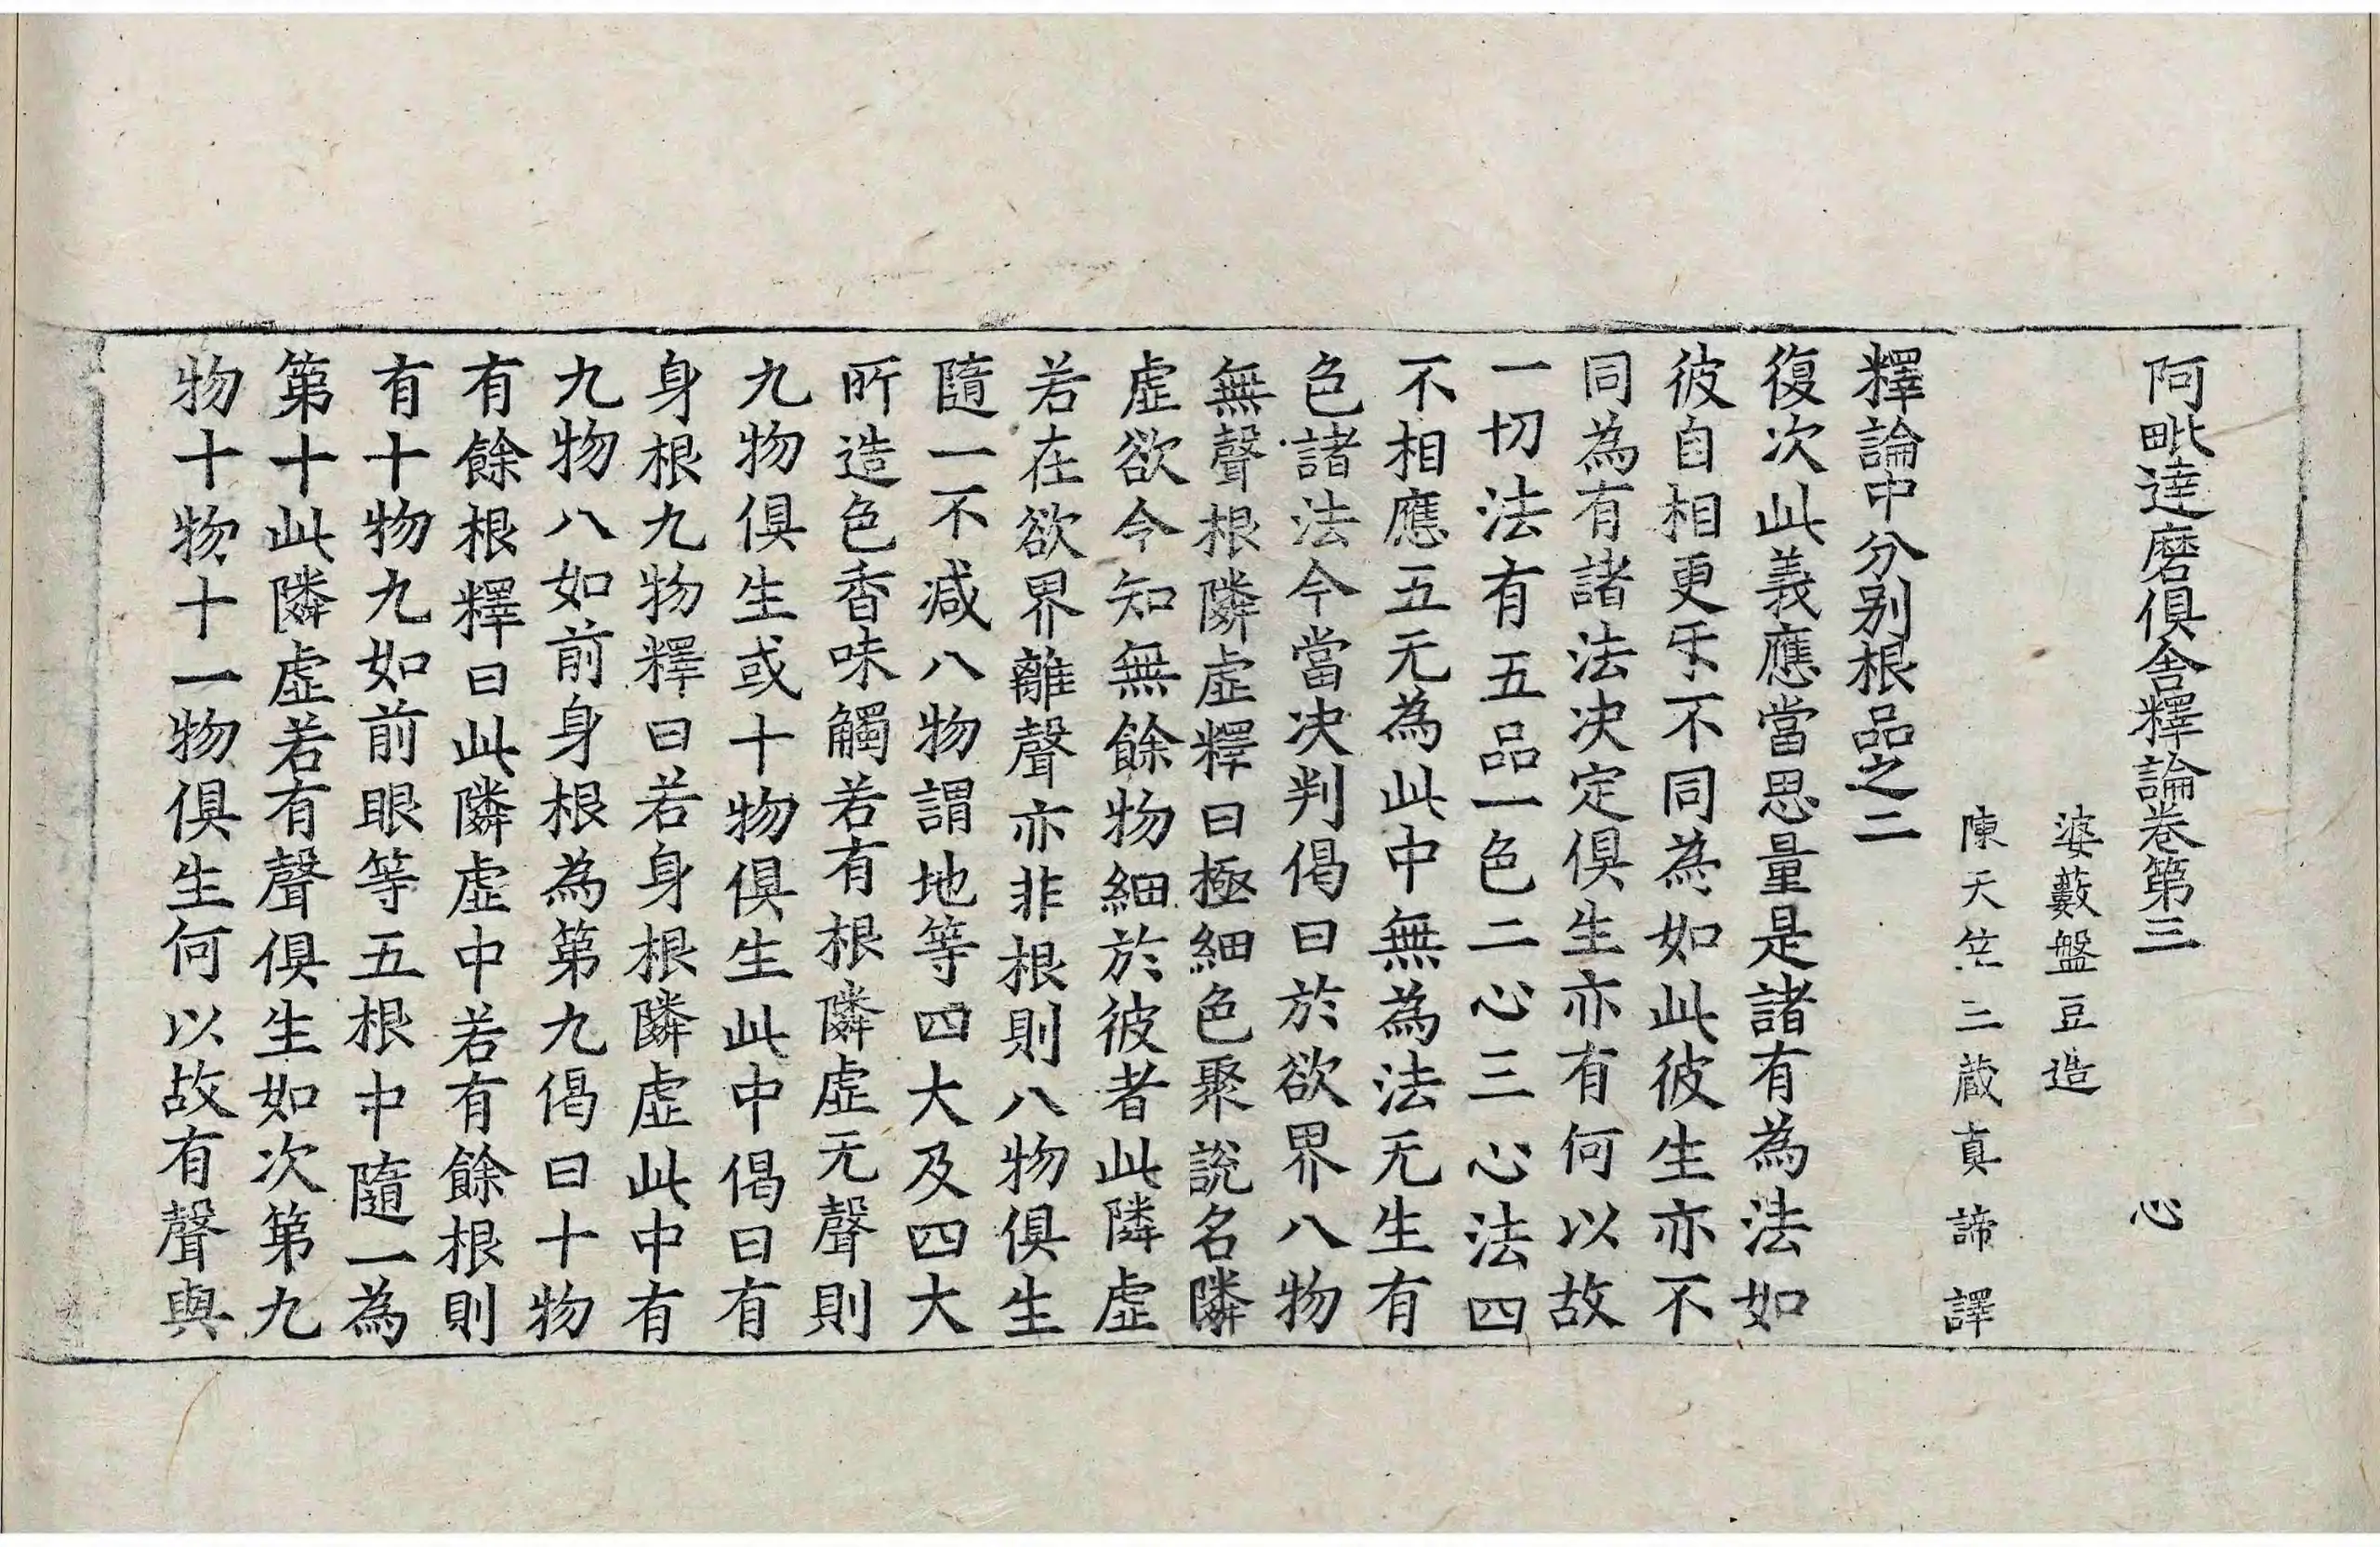 阿毗達磨俱舍釋論卷第三 心
婆藪盤豆造
陳天竺三藏真諦譯
釋論中分别根品之二
復次此義應當思量是諸有為法如
彼自相更㸦不同為如此彼生亦不
同為有諸法决定俱生亦有何以故
一切法有五品一色二心三心法四
不相應五无為此中無為法无生有
色諸法今當决判偈曰於欲界八物
無聲根隣虛釋曰極細色聚說名隣
虛欲令知無餘物細於彼者此隣虛
若在欲界離聲亦非根則八物俱生
隨一不减八物謂地等四大及四大
所造色香味觸若有根隣虛无聲則
九物俱生或十物俱生此中偈曰有
身根九物釋曰若身根隣虛此中有
九物八如前身根為第九偈曰十物
有餘根釋曰此隣虛中若有餘根則
有十物九如前眼等五根中隨一為
第十此隣虛若有聲俱生如次第九
物十物十一物俱生何以故有聲與